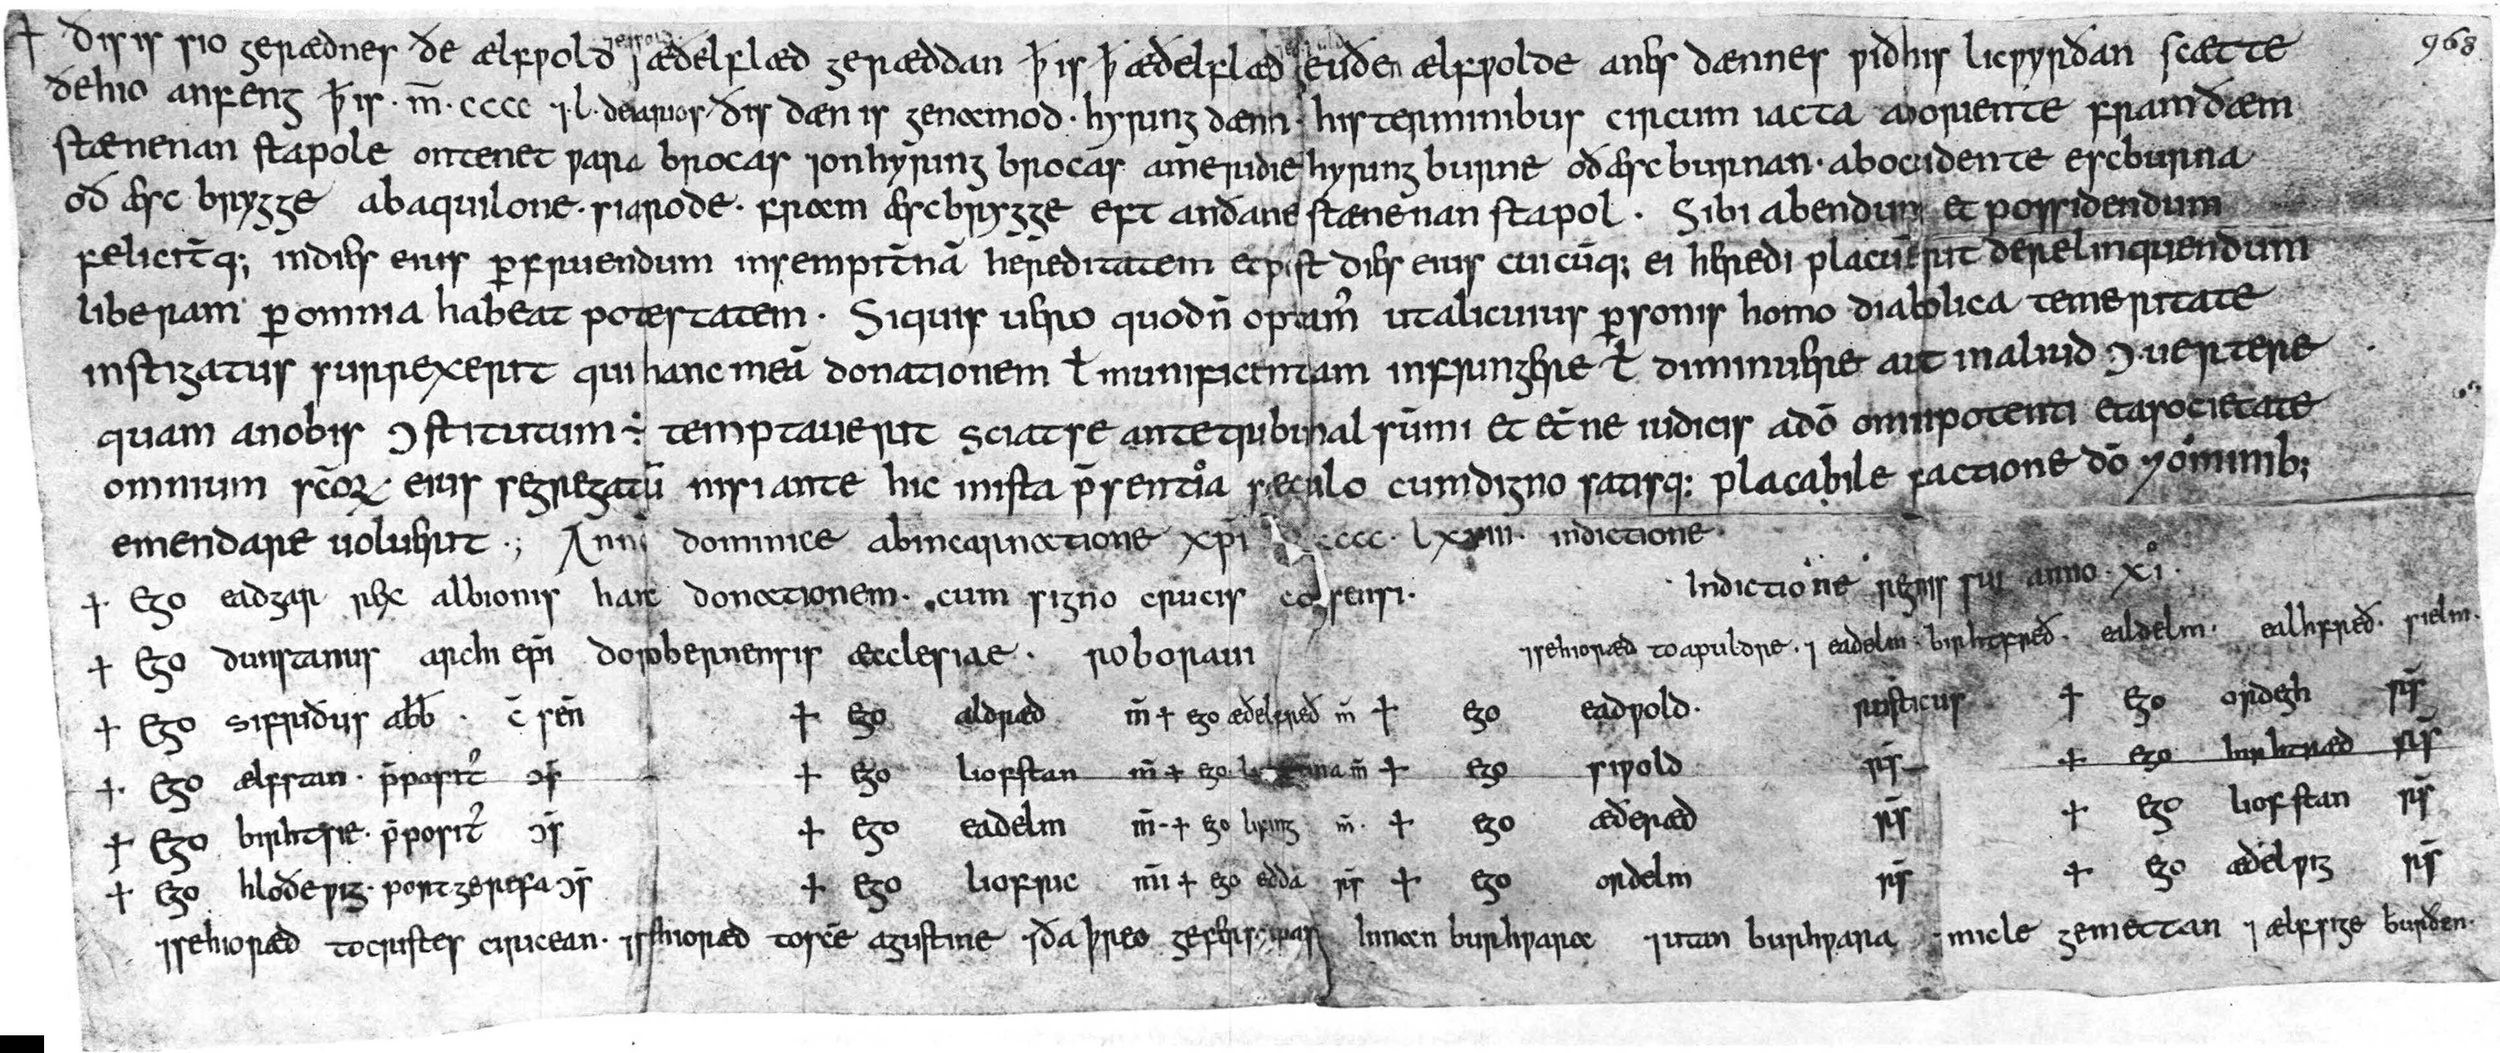 + ðis is sio gerædnes ðe ælfƿold ⁊ æðelflæd geræddan ꝥ is ꝥ æðelflæd ælfƿolde anæs dænnes ƿið his licƿyrðan scætte 968
ðe hio anfeng ꝥ is · m̄ · cccc ⁊ · l · denarios ðis dæn is genæmod · hyring dænn · his terminibus circum iacta aboriente fram ðæm
stænenan stapole on tenet ƿara brocas ⁊ on hyring brocas a meridie hyring burne oð æsc burnan · abocidente escburna
oð æsc brygge ab aquilone · siarode · fræm æscbrygge eft an ðane stænenan stapol · Sibi abendum et possidendum
felicit̄q; in diæs eius ꝑfruendum in sempit̄nā hereditatem et post diæs eius cuicūq; ei hæredi placuerit derelinquendum
liberam ꝑ omnia habeat potestatem · Siquis uæro quod n̄ optam̄ ut alicuius ꝑsonis homo diabolica temeritate
instigatus surrexerit qui hanc meā donationem ł munificentiam infringære ł diminuære aut in aliud ꝯuertere
quam a nobis ꝯstitutum ÷ temptauerit sciat se ante tribunal sūmi et et̄ne iudicis a dō omnipotenti et a societate
omnium sc̄oꝝ eius segregatū nisi ante hic in ista p̄sentia seculo cum digno satisq; placabile factione dō ⁊ ominib;
emendare uoluærit ·; Anni dominice ab incarnætione xp̄i cccc · lxviii · indictione ·
+ Ego eadgar ræx albionis hanc donætionem · cum signo crucis consensi · Indictione regnis sui anno · xi ·
+ Ego dunstanus archi ep̄i dorobernensis æcclesiae · roboraui ⁊ se hioræd to apuldre · ⁊ eadelm · birhtfreð · ealdelm · ealhfreð · sielm ·
+ Ego sifriðus abb̄ · c̄ sen̄ + ego aldræd m̄ + ego æðelfreð m̄ + ego eadƿold · rusticus + ego ordegh rs̄
+ Ego ælfstan · p̄posit᷒ ꝯs̄ + ego liofstan m̄ + ego m̄ + ego siƿold rs̄ + ego birhtræd rs̄
+ Ego birhtsie · p̄posit᷒ ꝯs̄ + ego eadelm m̄ + ego lifing m̄ · + ego æðeræd rs̄ + ego liofstan rs̄
+ Ego hloðeƿig · portgerefa ꝯs̄ + ego liofric m̄ + ego edda rs̄ + ego ordelm rs̄ + ego æðelƿig rs̄
⁊ se hioræd to cristes circean · ⁊ se hioræd to sc̄e agustine ⁊ ða þreo geferscipas innæn burhƿaræ ⁊ utan burhƿara ⁊ micle gemettan ⁊ ælfsige burðen ·